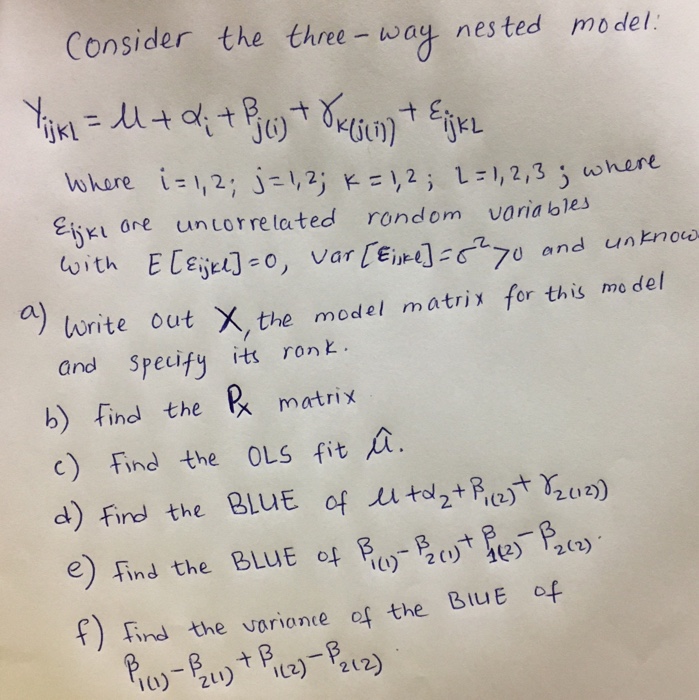 Consider the three-way nested model:
Yijkl = μ + αi + βj(i) + γk(j(i)) + εijkl
where i=1,2; j=1,2; k=1,2; l=1,2,3; where
εijkl are uncorrelated random variables
with E[εijkl]=0, var[εijkl]=σ²>0 and unknow
a) Write out X, the model matrix for this model
and specify its rank.
b) find the Px matrix
c) Find the OLS fit û.
d) Find the BLUE of μ+α2+β1(2)+γ2(12))
e) find the BLUE of β1(1)-β2(1)+β1(2)-β2(2).
f) find the variance of the BLUE of
β1(1)-β2(1)+β1(2)-β2(2).